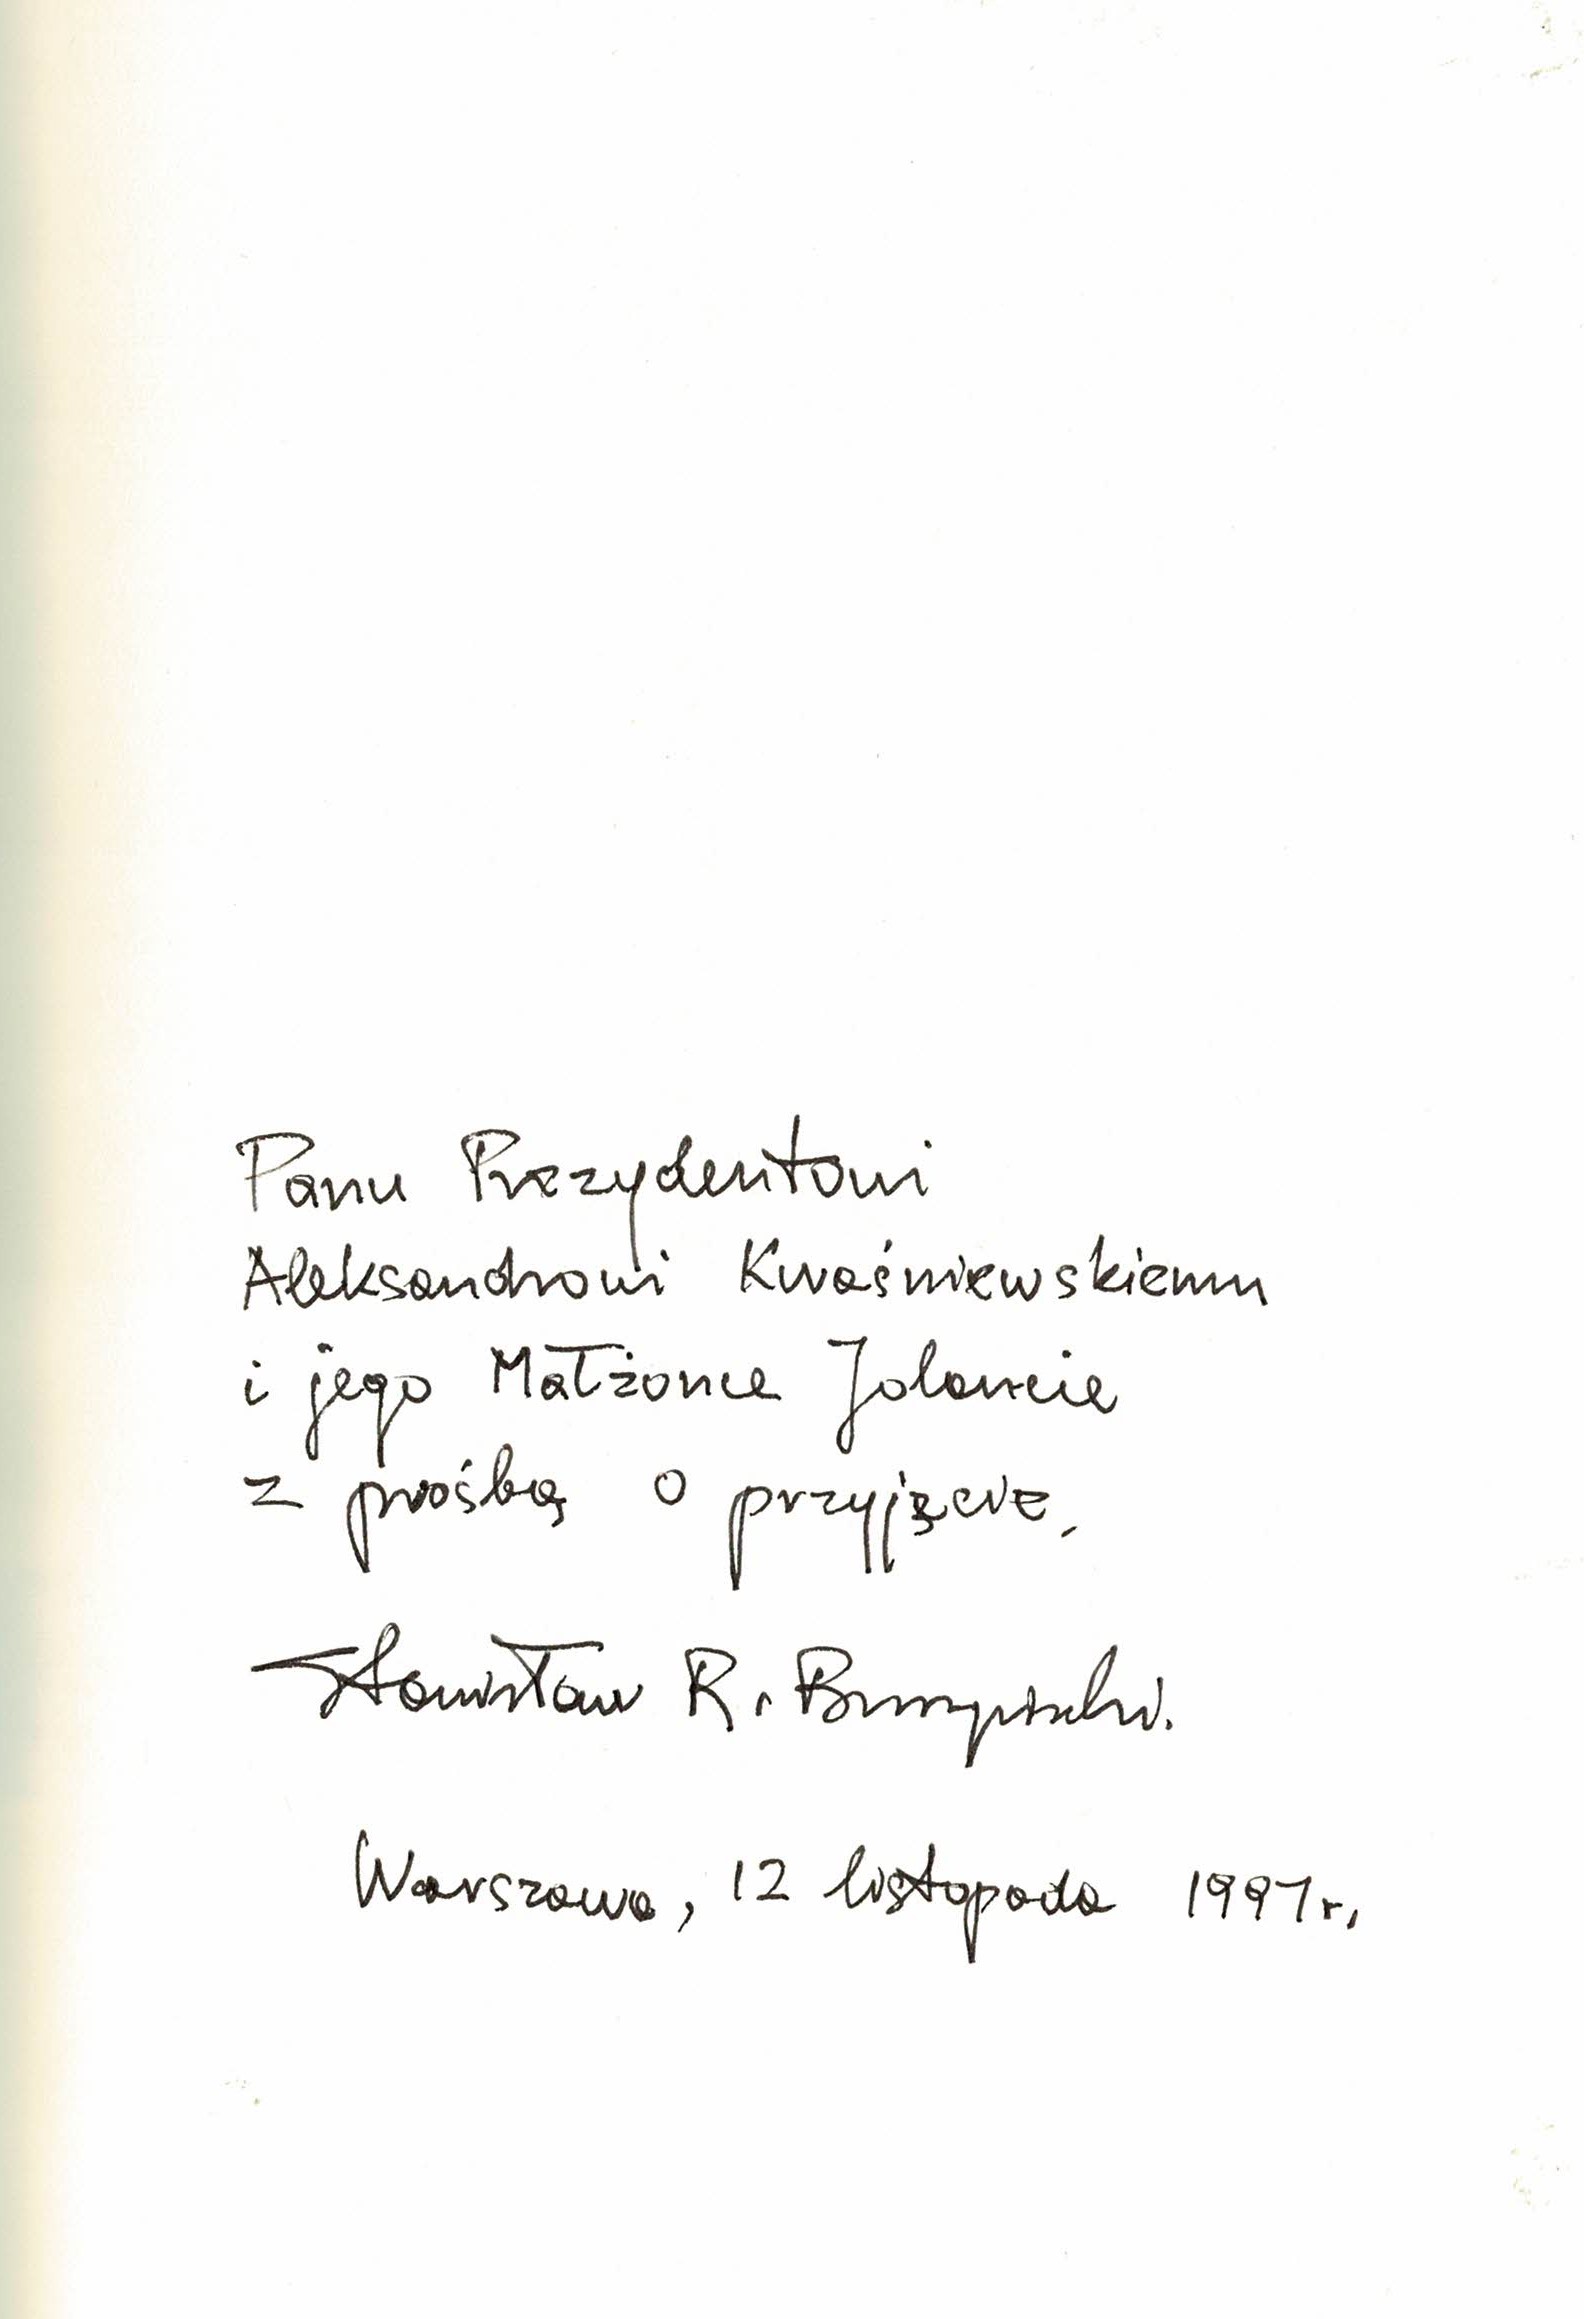 Panu Prezydentowi
Aleksandrowi Kwaśniewskiemu
i jego Małżonce Jolancie
z prośbą o przyjęcie,
Stanisław R. Burzyński.
Warszawa, 12 listopada 1997r.